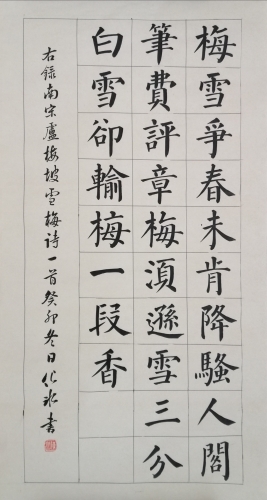 梅雪爭春未肯降騷人閣
筆費評章梅湏遜雪三分
白雪卻輸梅一段香
右錄南宋盧梅坡雪梅诗一首癸卯冬日化冰書